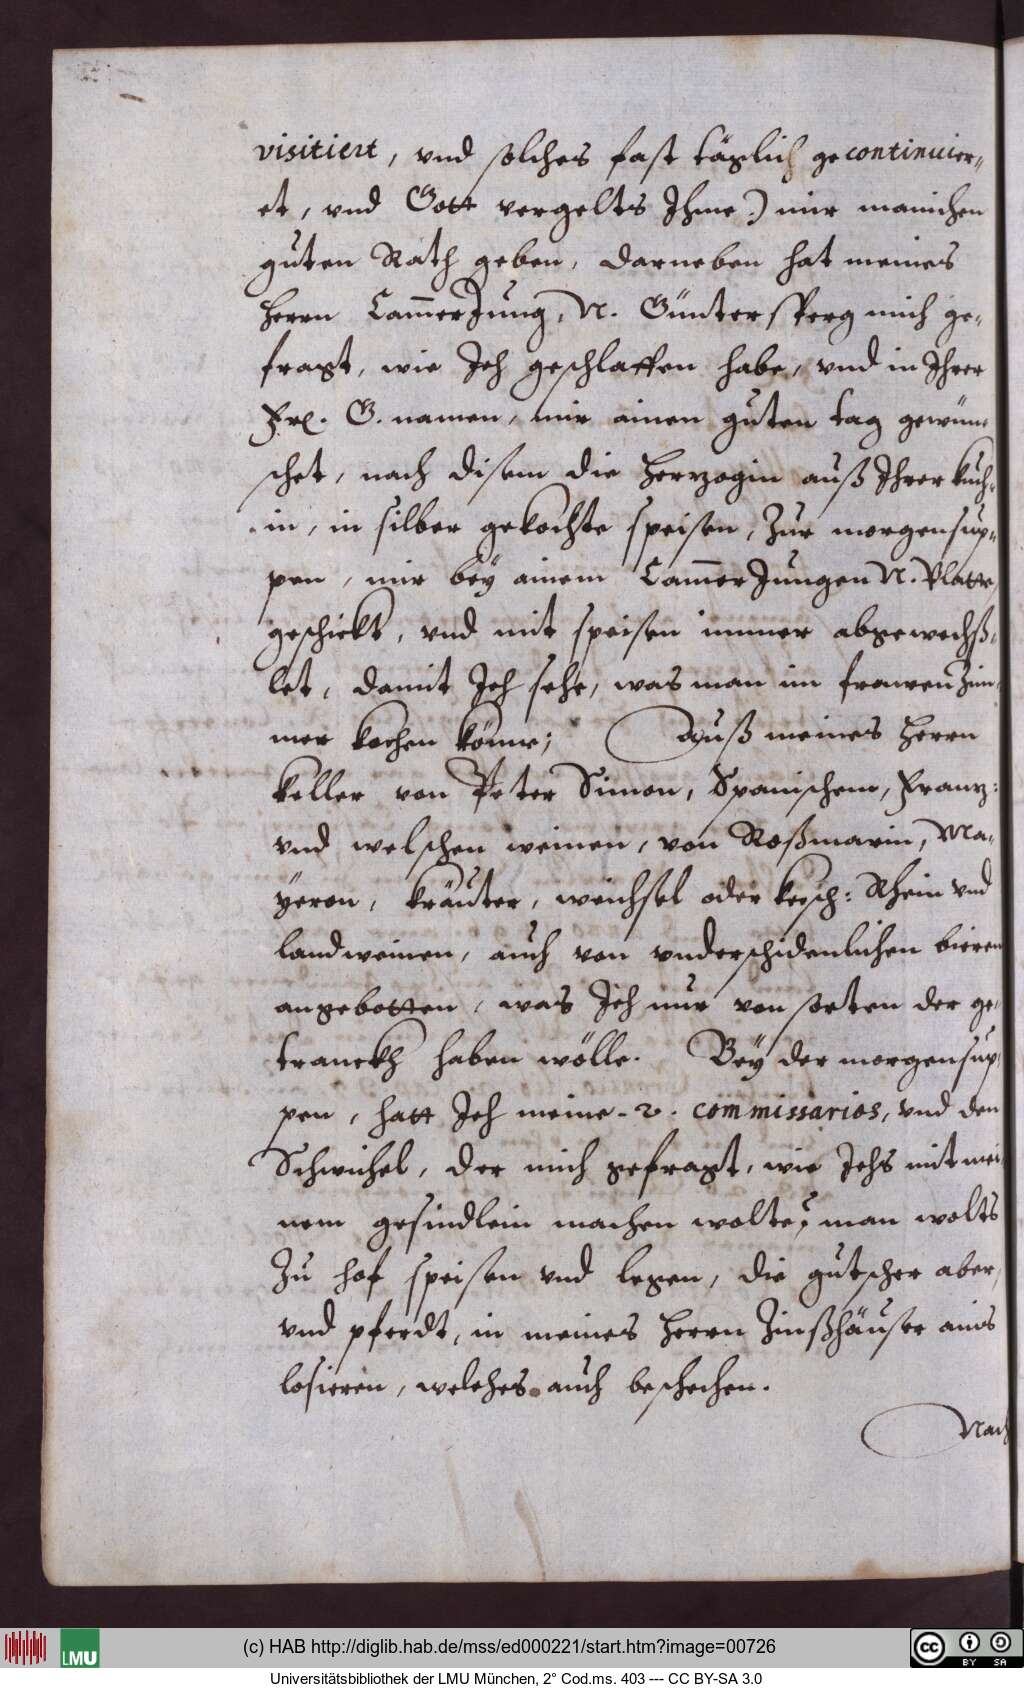 visitiert, vnd solches fast täglich gecontinuier„
et, vnd Gott vergelts Ihme:) mir mainchen
guten Rath geben, darneben hat meines
Herrn CammerJung, N. Güntersperg mich ge„
fragt, wie Ich geschlaffen habe, vnd in Ihrer
Frl. G. namen, mir ainen guten tag gewün
schet, nach disem die Herzogin auß Ihrer kuch„
in, in silber gekochte speisen, Zur morgensup„
pen, mir bey ainem CammerJungen N. Platte,
geschickt, vnd mit speisen immer abgewechß„
let, damit Ich sehe, was man im frawenZim„
mer kochen könne; Auß meines Herrn
keller von Peter Simon, Spanischem, Franz:
vnd welschen weinen, von Roßmarin, Ma„
yeron, kräuter, weichsel oder kersch: Rhein vnd
landweinen, auch von vnderschidenlichen bieren
angebotten, was Ich nur von sorten der ge„
tranckh haben wölle. Bey der morgensup„
pen, hatt Ich meine .2. commissarios, vnd den
Schwichel, der mich gefragt, wie Ichs mit mei
nem gesindlein machen wolte, man wolts
Zu hof speisen vnd legen, die gutscher aber,
vnd pferdt, in meines Herrn Zinßhäuser ains
losieren, welches auch beschechen.
Nach
(c) HAB http://diglib.hab.de/mss/ed000221/start.htm?image=00726
LMU
cc BY SA
Universitätsbibliothek der LMU München, 2° Cod.ms. 403 --- CC BY-SA 3.0